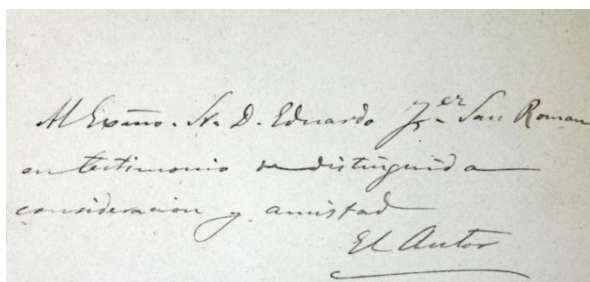 Al Exmo. Sr. D. Eduardo Fr.ez San Roman
en testimonio de distinguida
consideracion y amistad
El Autor